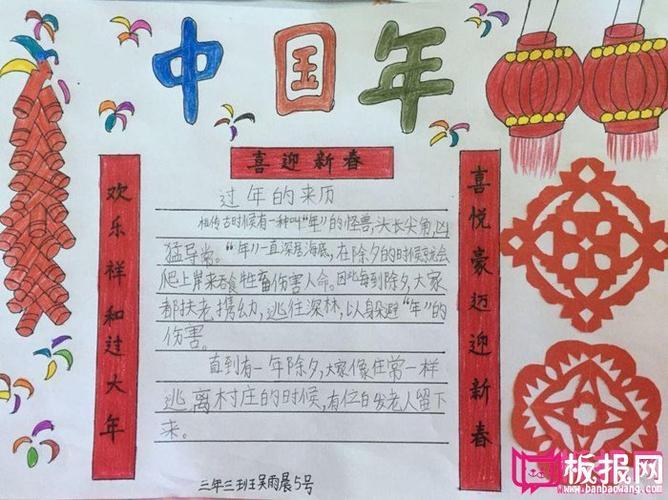 中国年
喜迎新春
欢乐祥和过大年
喜悦豪迈迎新春
过年的来历
相传古时候有一种叫“年”的怪兽,头长尖角,凶
猛导常。“年”一直深居海底,在除夕的时候就会
爬上岸来吞食牲畜伤害人命。因此每到除夕,大家
都扶老携幼,逃往深林,以躲避“年”的
伤害。
直到有一年除夕,大家像往常一样
逃离村庄的时候,有位白发老人留下
来。
三年三班吴雨晨5号
板报网
www.banbaowang.com